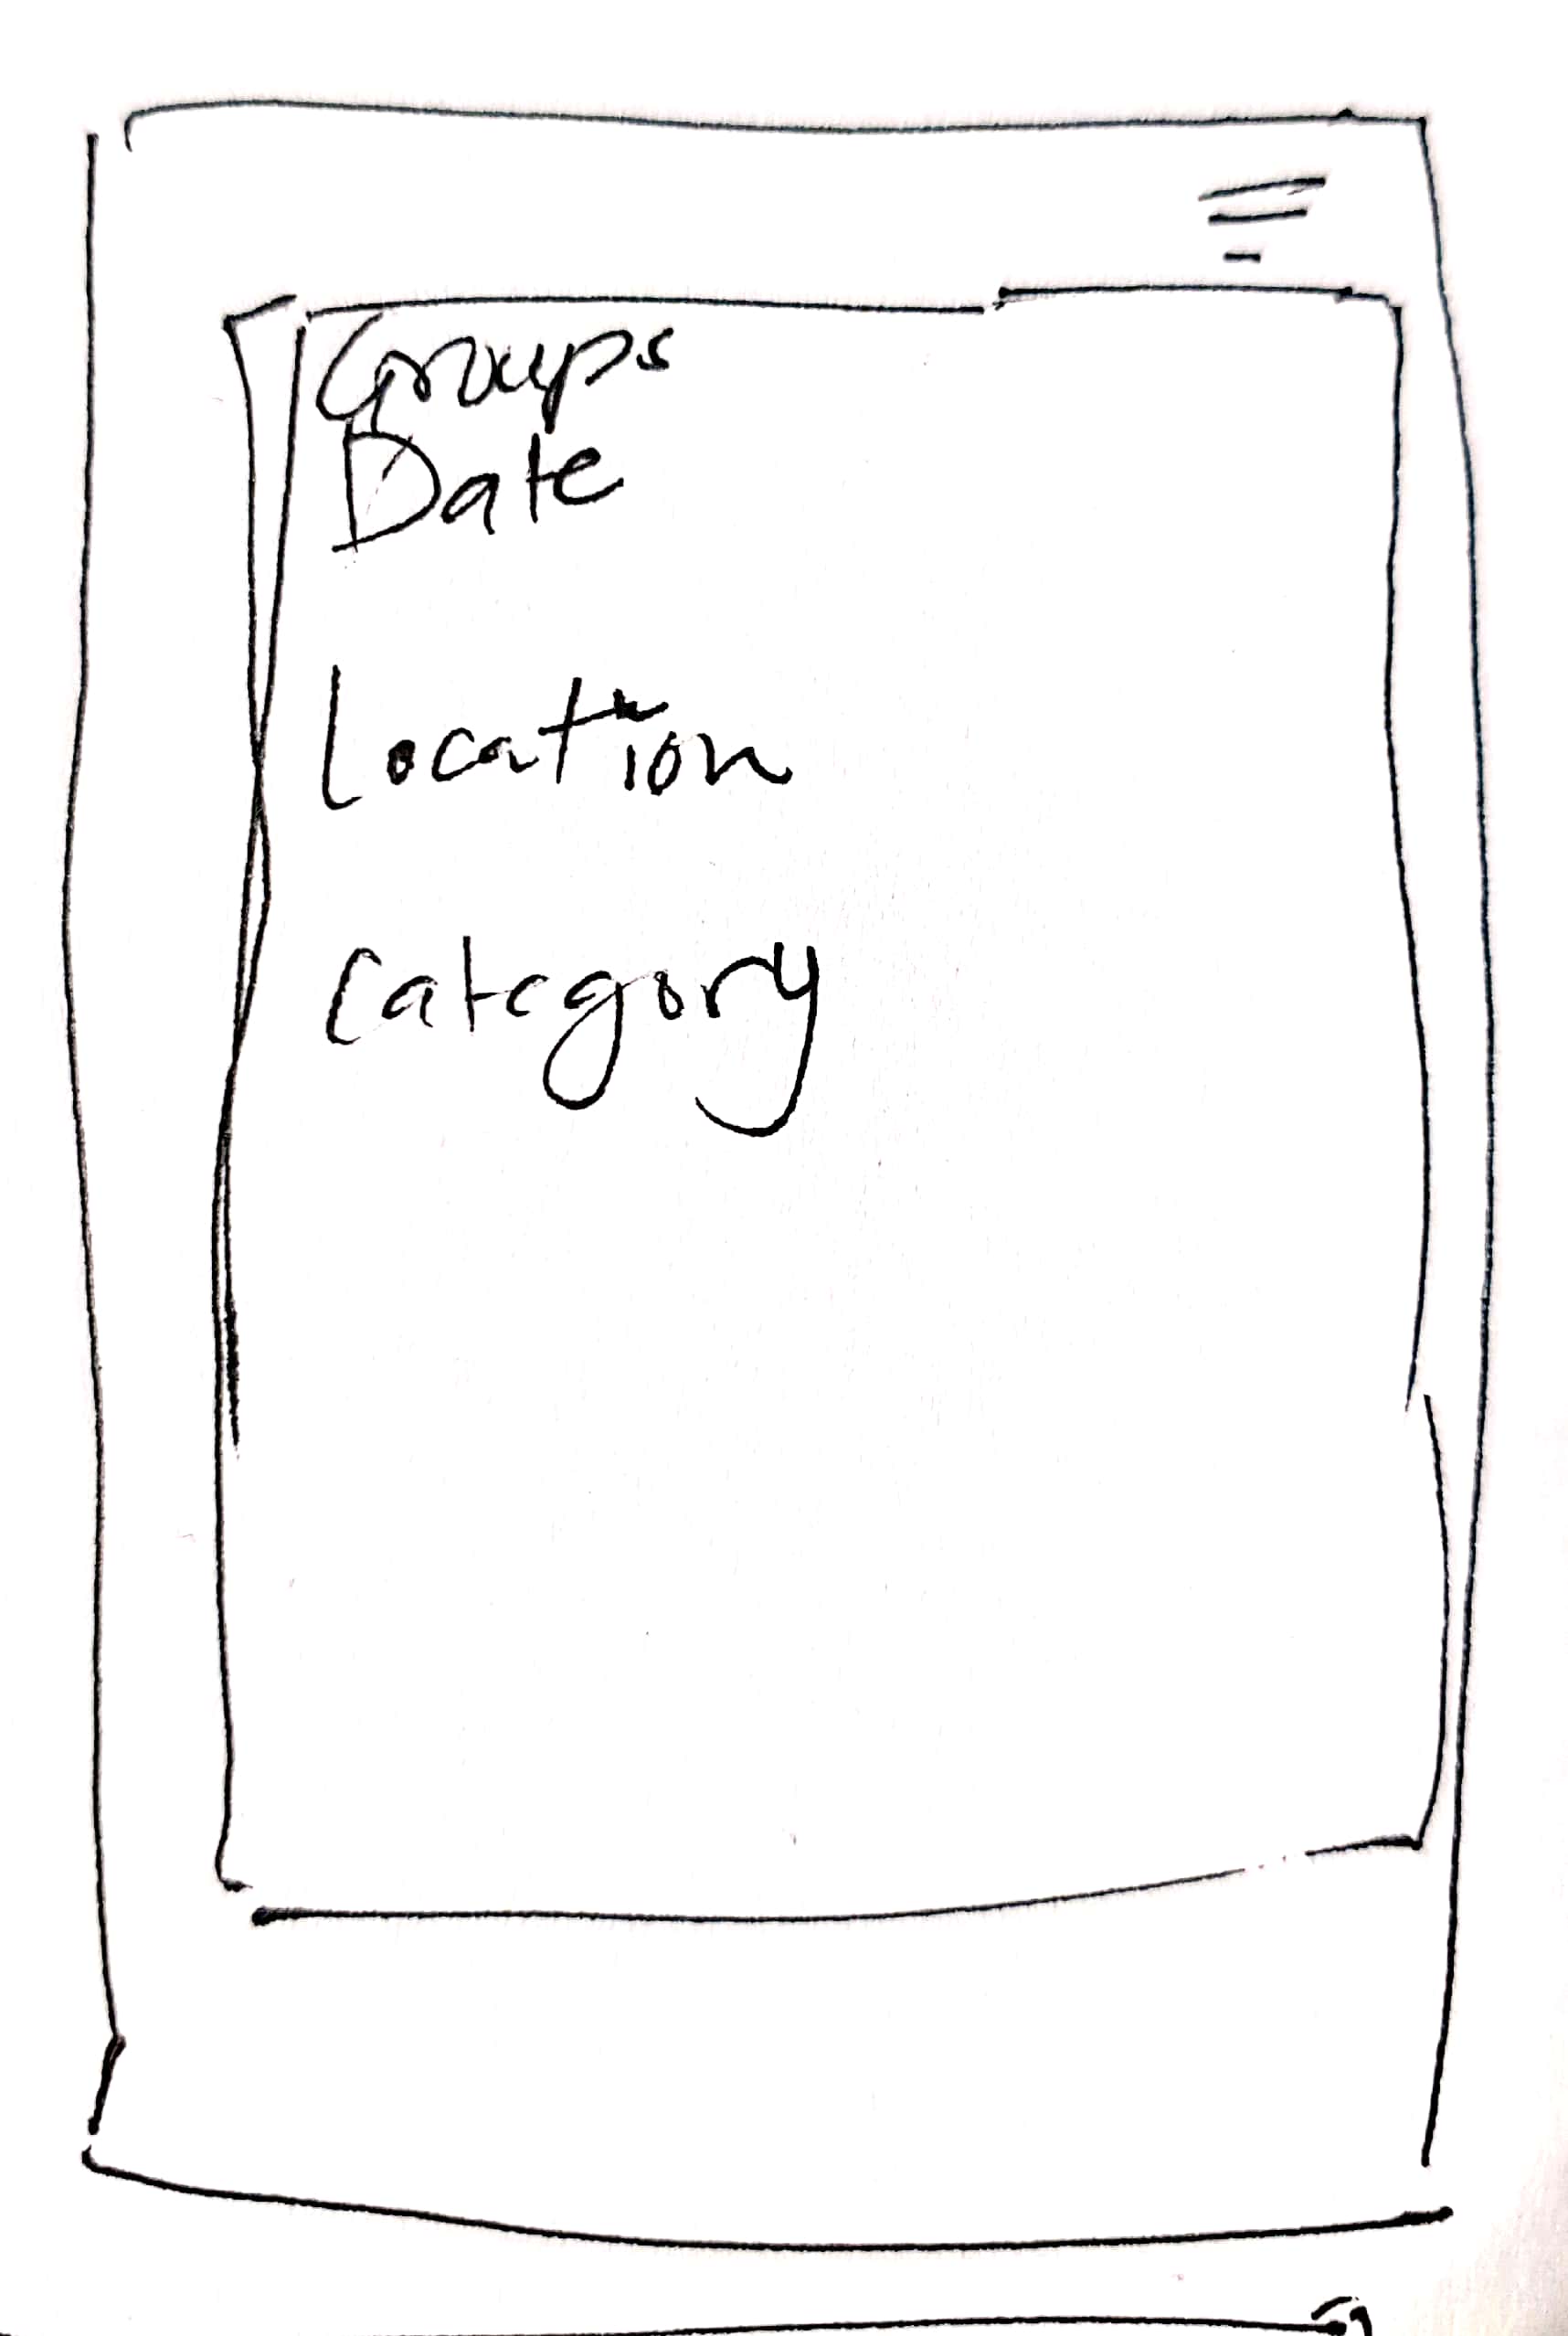 Groups
Date
Location
Category